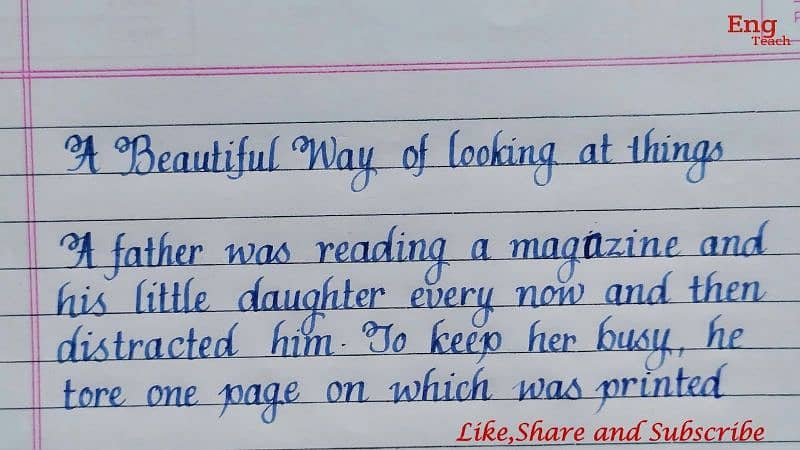 Eng
Teach
A Beautiful Way of looking at things
A father was reading a magazine and
his little daughter every now and then
distracted him. To keep her busy, he
tore one page on which was printed
Like,Share and Subscribe